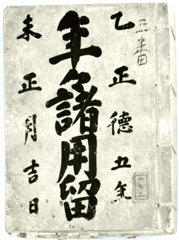 三番
乙正徳五年
年々諸用留
未正月吉日